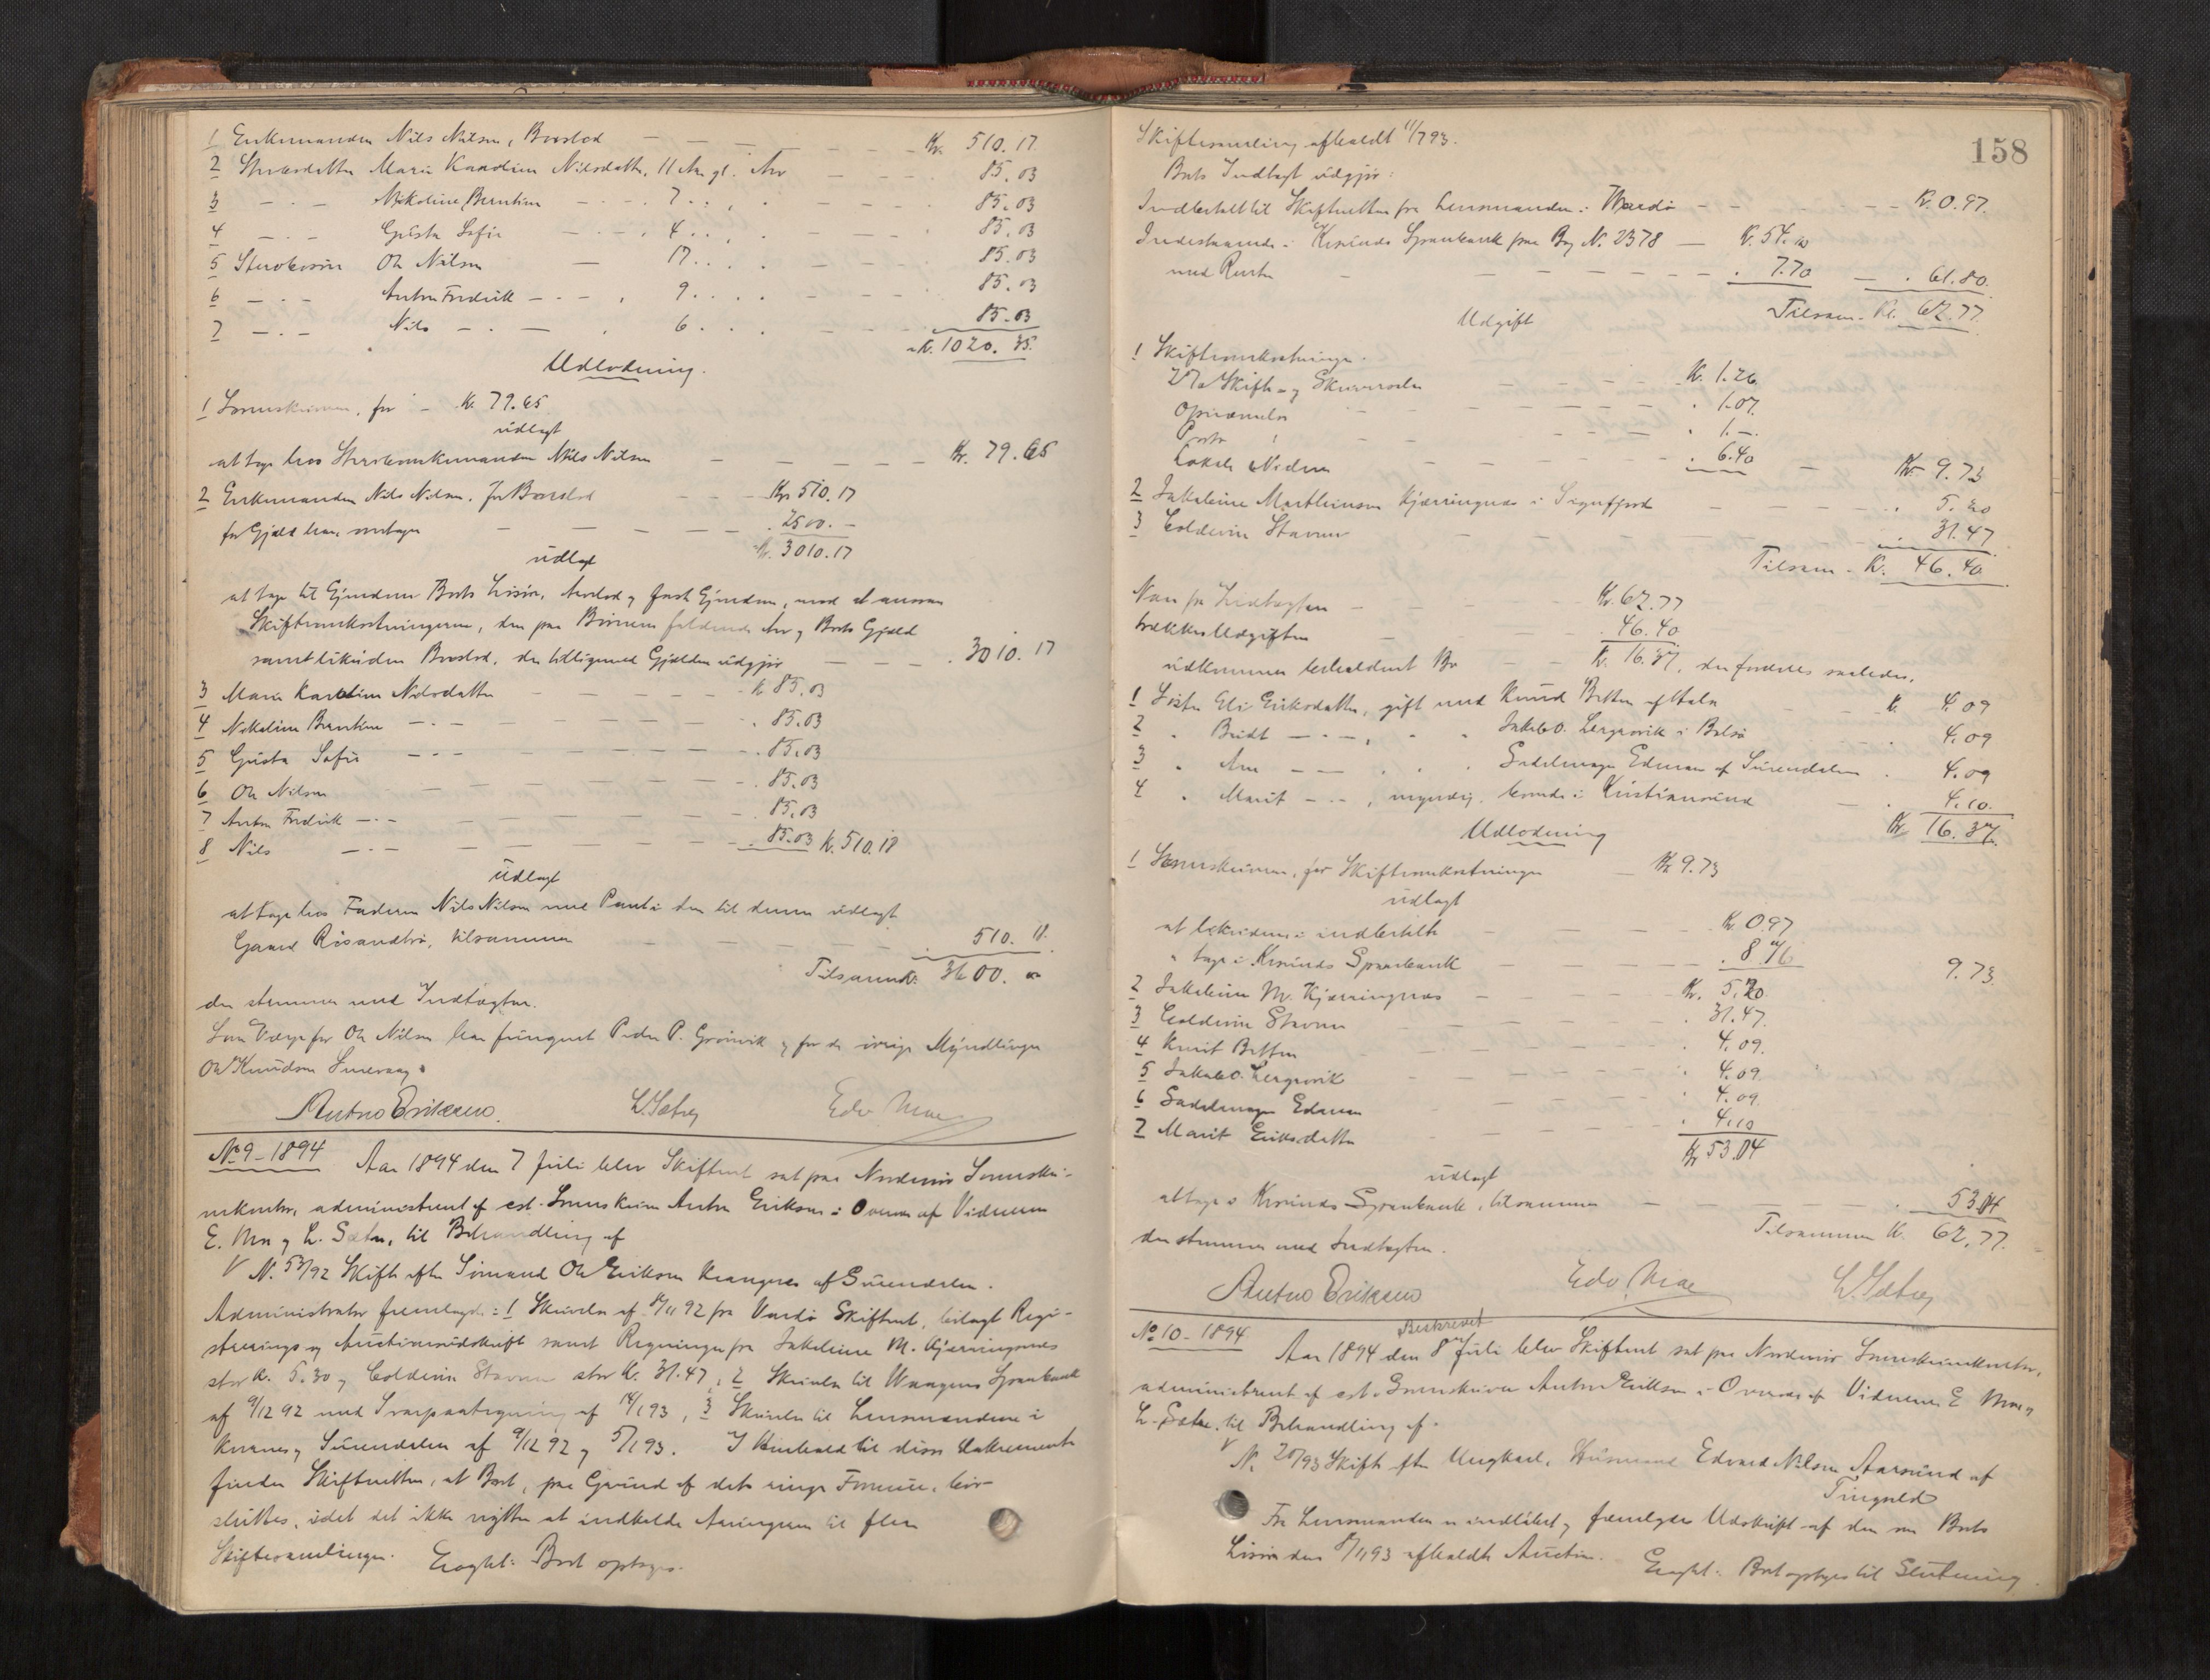 1 Enkemanden Nils Nilsen, Boeslod — — — Kr. 510.17
2 Sterbsdatter Marie Karoline Nilsdatter, 11 Aar gl. Arv — — 85.03
3 — " — Nikoline Berntine — " — 7 " " — — 85.03
4 — " — Gusta Sofie — " — 4 " " — — 85.03
5 Sterbosøn Ole Nilsen — 17 " " — — 85.03
6 — " — Anton Fredrik — " — 9 " " — — 85.03
7 — " — Nils — " — 6 " " — — 85.03
Kr. 1020.35
Udlodning.
1 Sorenskriveren, for — Kr. 79.65
udlagt
at tage hos Sterboenkemanden Nils Nilsen — — — Kr. 79.65
2 Enkemanden Nils Nilsen, for Boeslod — — Kr. 510.17
for Gjæld han overtager — — — 2500.—
Kr. 3010.17
udlagt
at tage til Eiendom Boets Løsøre, Avslod og fast Eiendom, mod at ansvare
Skifteomkostningerne, den paa Børnene faldende Arv og Boets Gjæld
samt likviden Boeslod, der tilligemed Gjælden udgjør — — 3010.17
3 Marie Karoline Nilsdatter — — — Kr. 85.03
4 Nikoline Berntine — " — — 85.03
5 Gusta Sofie — " — — 85.03
6 Ole Nilsen — — 85.03
7 Anton Fredrik — " — — 85.03
8 Nils — " — — 85.03 Kr. 510.18
udlagt
at tage hos Faderen Nils Nilsen med Pant i den til denne udlagt
Gaard Risandbø, tilsammen — — 510.18
Tilsammen Kr. 3600.00
der stemmer med Indtægten.
Som Værge for Ole Nilsen har fungeret Peder P. Grønvik og for de øvrige Myndlinger
Ole Knudsen Smevaag.
Anton Eriksen. L. Sæter Edv. Moe
No 9 - 1894 Aar 1894 den 7 Juli blev Skifteret sat paa Nordmør Sorenskri-
verkontor, administreret af cst. Sorenskriver Anton Eriksen i Overvær af Vidnerne
E. Moe og L. Sæter, til Behandling af
V N. 53/92 Skifte efter Sømand Ole Eriksen Kvangnes af Surendalen.
Administrator fremlagde: 1 Skrivelse af 8/11 92 fra Vardø Skifteret, bilagt Regi-
strerings og Auktionsudskrift samt Regninger fra Jakobine M. Kjærringnes
stor Kr. 5.30 og Coldevin Stavnes stor Kr. 31.47, 2 Skrivelse til Waagens Sparebank
af 9/12 92 med Svarpaategning af 14/1 93, 3 Skrivelse til Lensmændene i
Kvernes og Surendalen af 9/12 92 og 5/1 93. I Henhold til disse Dokumenter
finder Skifteretten, at Boet, paa Grund af dets ringe Formue, bør
sluttes, idet det ikke nytter at indkalde Arvingerne til flere
Skiftesamlinger. Eragtet: Boet optages.
158
Skiftesamling afholdt 11/7 93.
Boets Indtægt udgjør:
Indbetalt til Skifteretten fra Lensmanden i Vardø — — Kr. 0.97.
Indestaaende i Krsunds Sparebank paa Bog N. 2378 — Kr. 54.10
med Renter — — — 7.70 — 61.80
Tilsam. Kr. 62.77
Udgift
1 Skifteomkostninger.
2% Skifte- og Skriversalær — — Kr. 1.26
Opnævnelse — — 1.07
Porto — — 1.—
Lokale & Vidner — — 6.40 — Kr. 9.73
2 Jakobine Marthinsen Kjærringnes i Syvfjord — — 5.20
3 Coldevin Stavnes — — 31.47
Tilsam. Kr. 46.40
Naar fra Indtægten — — Kr. 62.77
trækkes Udgiften — — 46.40
udkommer beholdent Bo — — Kr. 16.37, der fordeles saaledes.
1 Søster Eli Eriksdatter, gift med Knud Bitten af Halsa — Kr. 4.09
2 " Beret — " —, " " Jakob O. Lergrovik i Bolsø — 4.09
3 " Ane — — " " " Sadelmager Edman af Surendalen — 4.09
4 " Marit — " —, myndig, boende i Kristiansund — 4.10.
Kr. 16.37.
Udlodning
1 Sorenskriveren, for Skifteomkostninger — Kr. 9.73
udlagt
at likvidere i indbetalte — — Kr. 0.97
" tage i Krsunds Sparebank — — 8.76 9.73
2 Jakobine M. Kjærringnes — — Kr. 5.20
3 Coldevin Stavnes — — 31.47.
4 Knut Bitten — — 4.09.
5 Jakob O. Lergrovik — — 4.09
6 Sadelmager Edman — — 4.09
7 Marit Eriksdatter — — 4.10
Kr. 53.04
udlagt
at tage i Krsunds Sparebank, tilsammen — — 53.04
Tilsammen Kr. 62.77.
der stemmer med Indtægten.
Anton Eriksen Edv. Moe L. Sæter
Beskrevet
No 10 - 1894 Aar 1894 den 8 Juli blev Skifteret sat paa Nordmør Sorenskriverkontor,
administreret af cst. Sorenskriver Anton Eriksen i Overvær af Vidnerne E. Moe og
L. Sæter, til Behandling af.
V N. 20/93 Skifte efter Ungkarl, Husmand Edvard Nilsen Aarsund af
Tingvold
Fra Lensmanden er indløbet og fremlægges Udskrift af den over Boets
Løsøre den 8/11 93 afholdte Auction. Eragtet: Boet optages til Slutning.